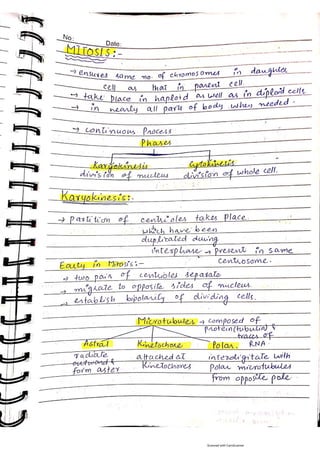 No:
Date:
MITOSIS:-
→ ensures same no. of chromosomes in daughter
cell as that in parent cell.
→ take place in haploid as well as in diploid cells
→ in nearly all parts of body when needed.
→ continuous Process
Phases
Karyokinesis Cytokinesis
division of nucleus division of whole cell.
Karyokinesis:-
→ Partition of centrioles takes place
which have been
duplicated during
interphase → present in same
centrosome.
Early in Mitosis:-
→ two pairs of centrioles separate
→ migrate to opposite sides of nucleus
→ establish bipolarity of dividing cells.
Microtubules → composed of
protein(tubulin) &
traces of
RNA.
Astral Kinetochore Polar.
radiate attached at interdigitate with
outward & Kinetochores polar microtubules
form aster from opposite pole.
Scanned with CamScanner